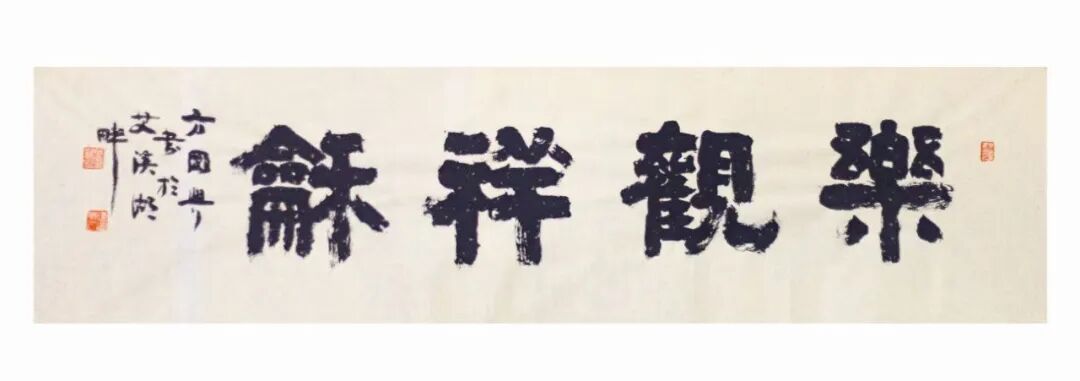 樂觀祥龢
方國興
書於
艾溪湖
畔